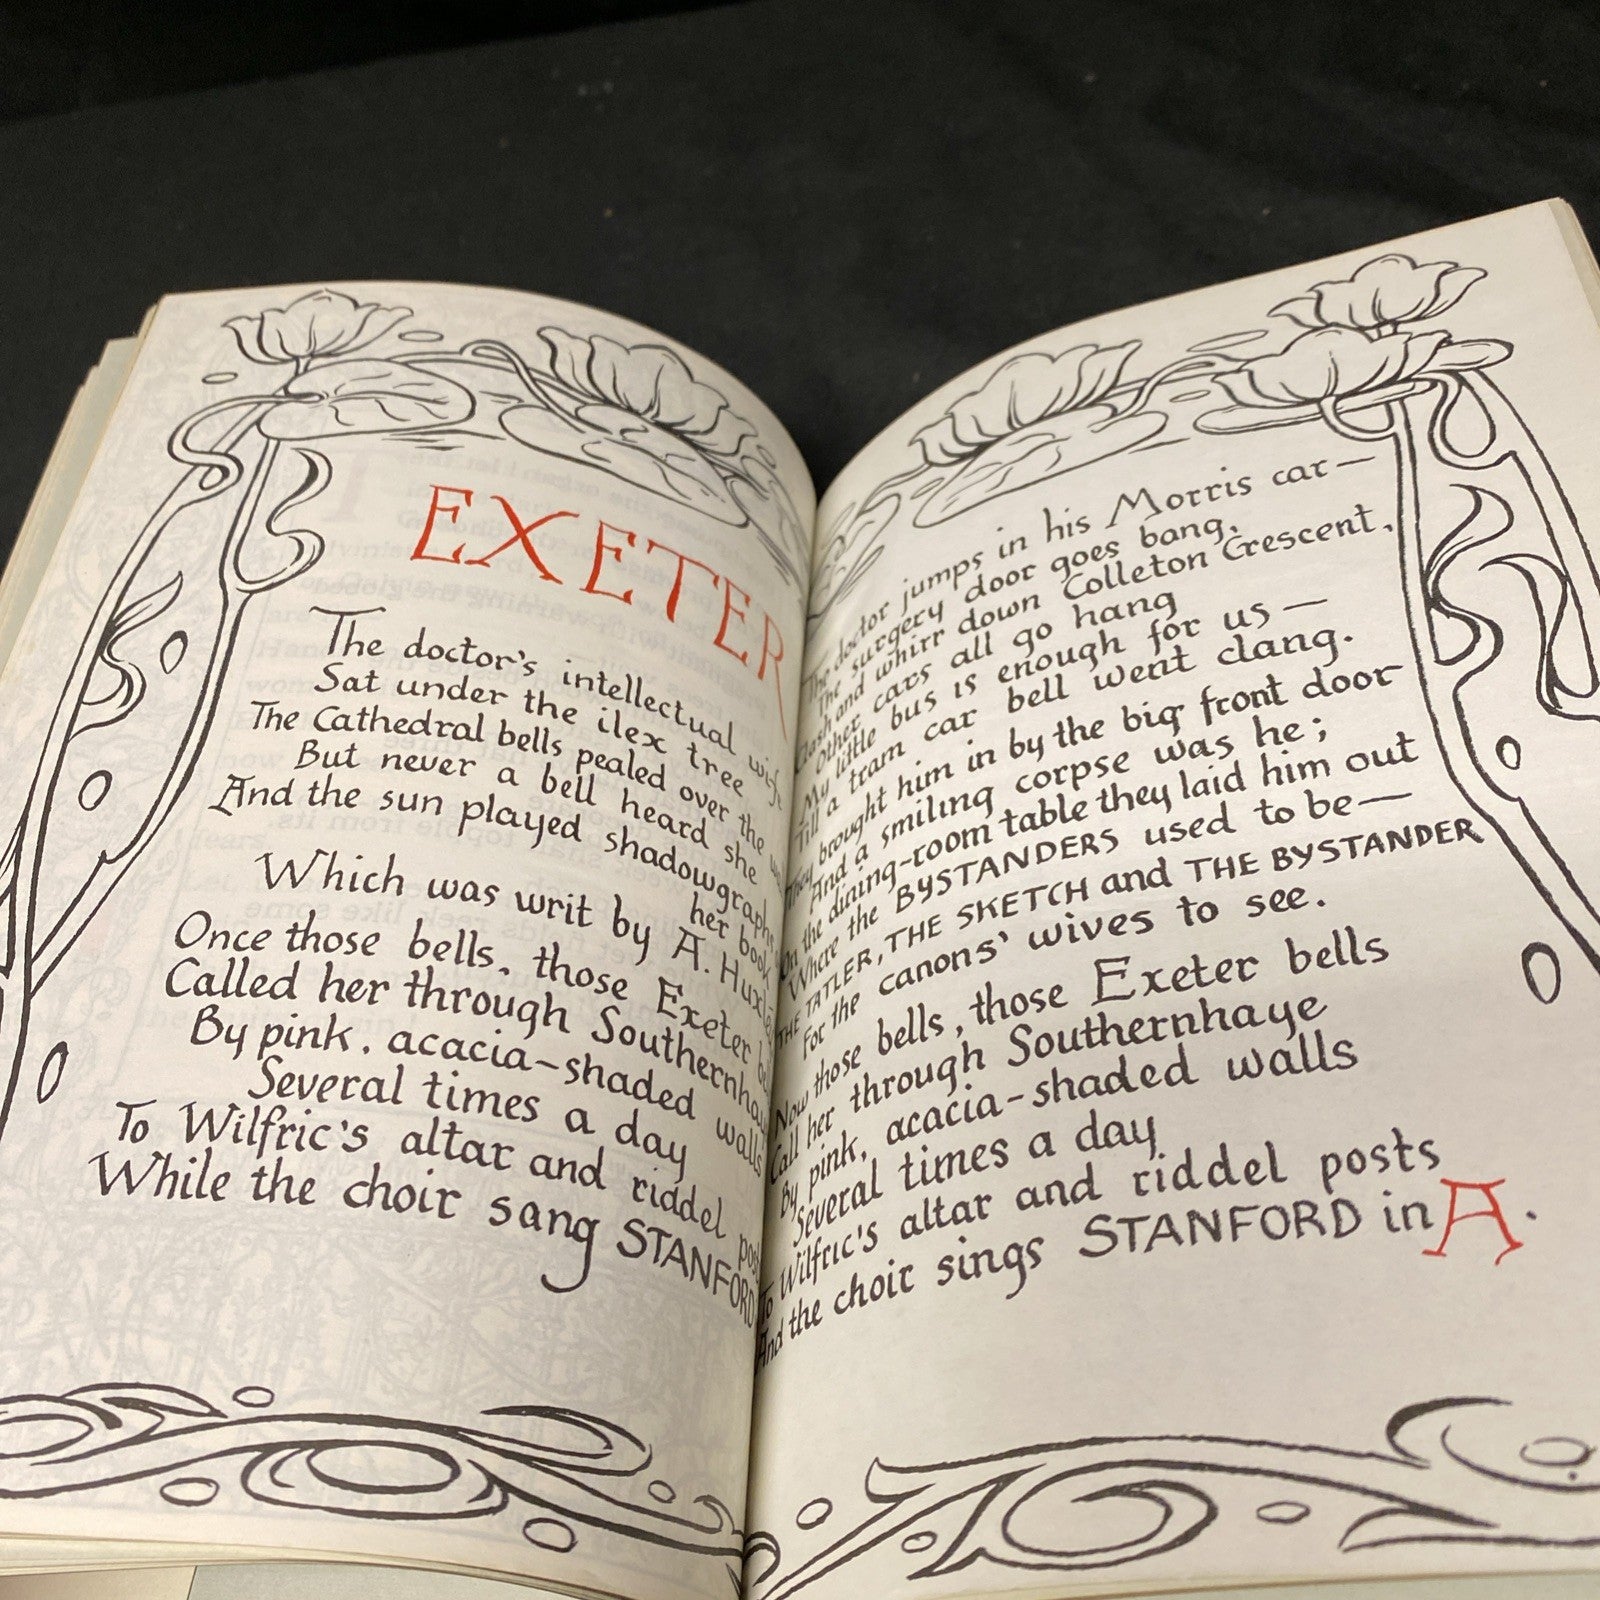 EXETER
The doctor's intellectual wife
Sat under the ilex tree
The Cathedral bells pealed over the
But never a bell heard she
And the sun played shadowgraphs
her book
Which was writ by A. Huxley
Once those bells, those Exeter
Called her through Southernhay
By pink, acacia-shaded walls
Several times a day
To Wilfric's altar and riddel posts
While the choir sang STANFORD
The doctor jumps in his Morris car—
The surgery door goes bang,
Clash and whirr down Colleton Crescent,
Other cars all go hang
My little bus is enough for us—
Till a tram car bell went clang.
They brought him in by the big front door
And a smiling corpse was he;
On the dining-room table they laid him out
Where the BYSTANDERS used to be—
THE TATLER, THE SKETCH and THE BYSTANDER
For the canons' wives to see.
Now those bells, those Exeter bells
Call her through Southernhaye
By pink, acacia-shaded walls
Several times a day
To Wilfric's altar and riddel posts
And the choir sings STANFORD in A.